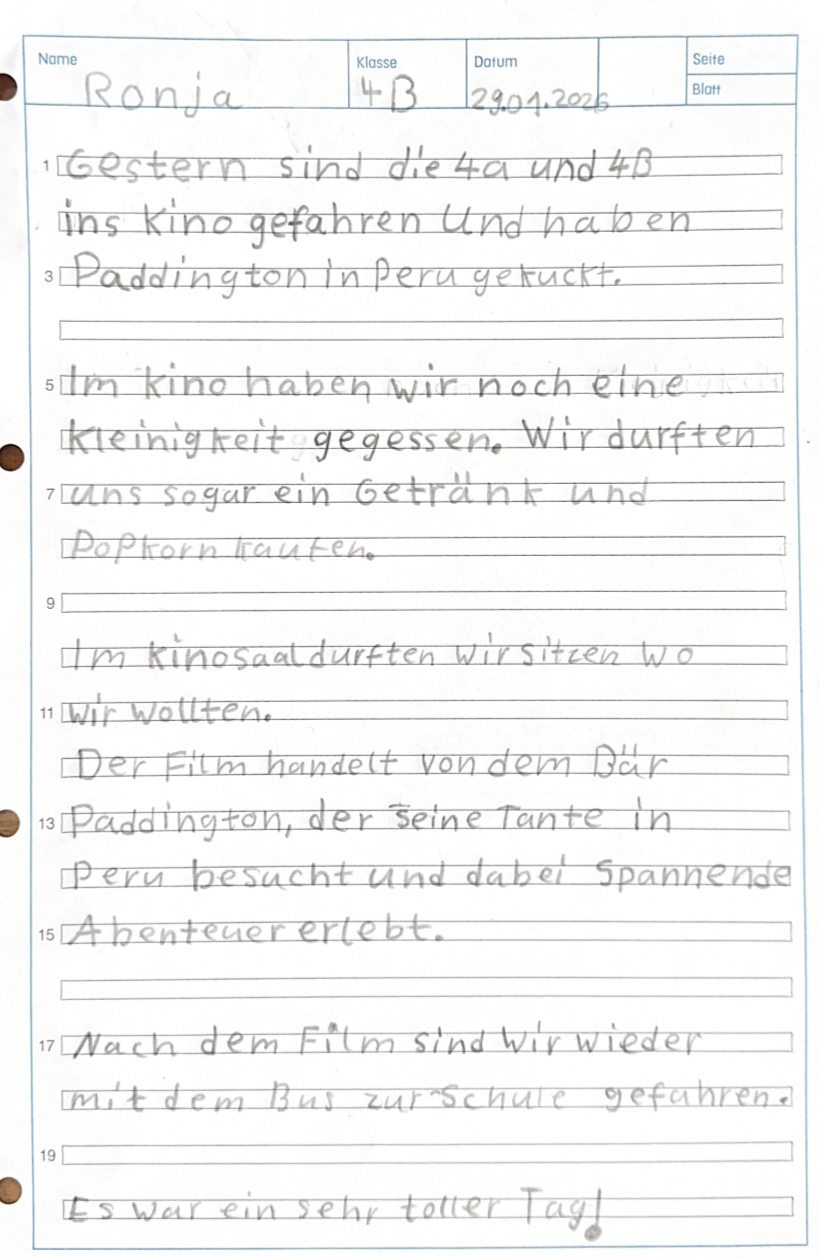 Name
Ronja
Klasse
4B
Datum
29.01.2026
Seite
Blatt
1 Gestern sind die 4a und 4B
ins Kino gefahren Und haben
3 Paddington in Peru gekuckt.
5 Im kino haben wir noch eine
Kleinigkeit gegessen. Wir durften
7 uns sogar ein Getränk und
Popkorn kaufen.
9
Im Kinosaal durften wir sitzen wo
11 wir wollten.
Der Film handelt von dem Bär
13 Paddington, der seine Tante in
Peru besucht und dabei Spannende
15 Abenteuer erlebt.
17 Nach dem Film sind wir wieder
mit dem Bus zur Schule gefahren.
19
Es war ein sehr toller Tag!